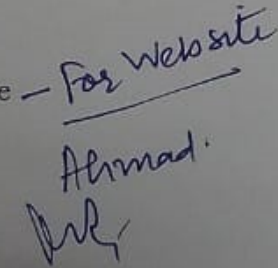 e - For Website
Ahmad.